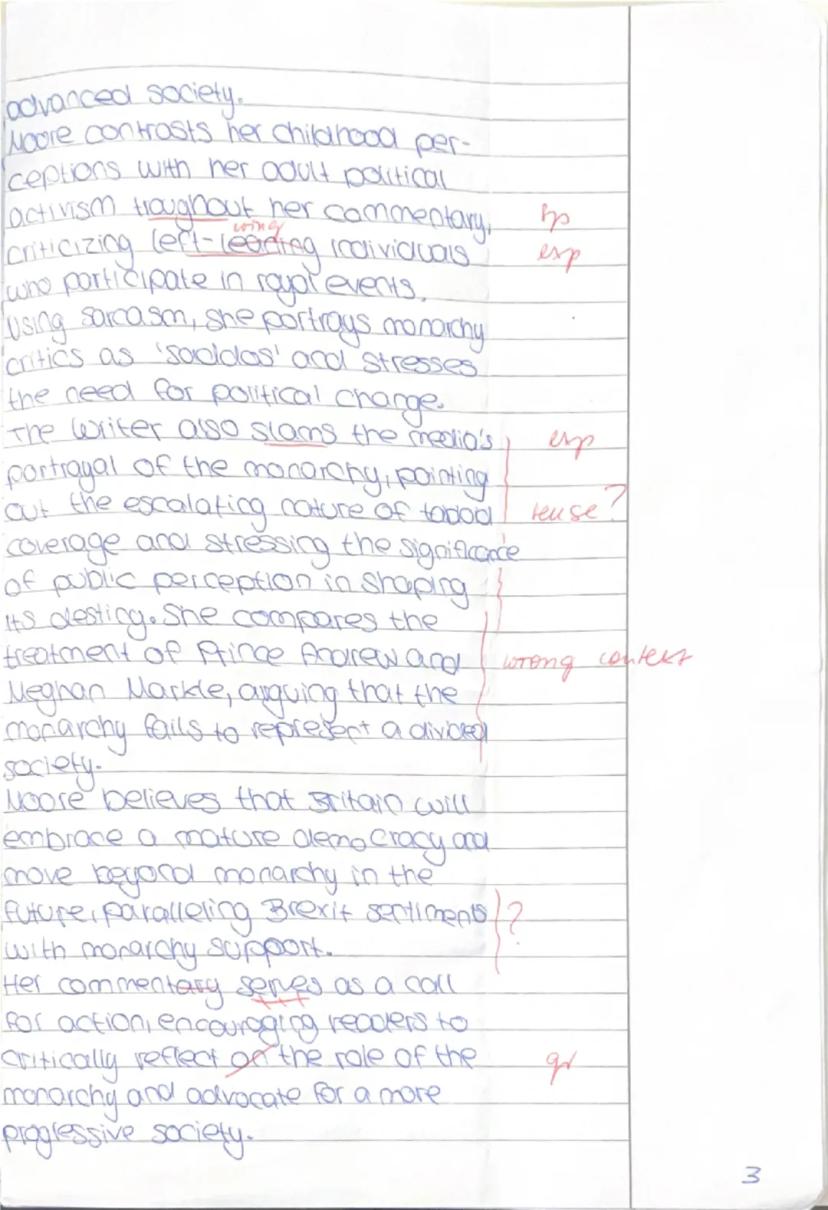 advanced society.
Moore contrasts her childhood per-
ceptions with her adult political
activism troughout her commentary, sp
wing
criticizing left-leading individuals exp
who participate in royal events.
Using sarcasm, she portrays monarchy
critics as 'saddos' and stresses
the need for political change.
The writer also slams the media's exp
portrayal of the monarchy, pointing
out the escalating nature of tabloid tense?
coverage and stressing the significance
of public perception in shaping
its destiny. She compares the
treatment of Prince Andrew and wrong context
Meghan Markle, arguing that the
monarchy fails to represent a divided
society.
Moore believes that Britain will
embrace a mature democracy and
move beyond monarchy in the
future, paralleling Brexit sentiments ?
with monarchy support.
Her commentary serves as a call
for action, encouraging readers to
critically reflect on the role of the gr
monarchy and advocate for a more
progressive society.
3